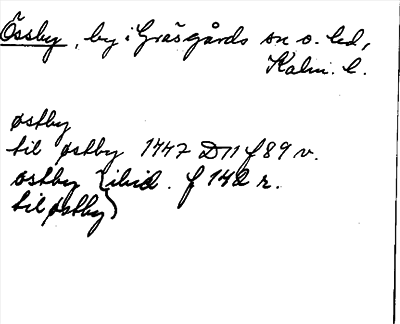 Össby, by i Gräsgårds sn o. hd,
Kalm. l.
østby
til østby 1447 D11 f 89 v.
østby } ibid. f 142 r.
til østby